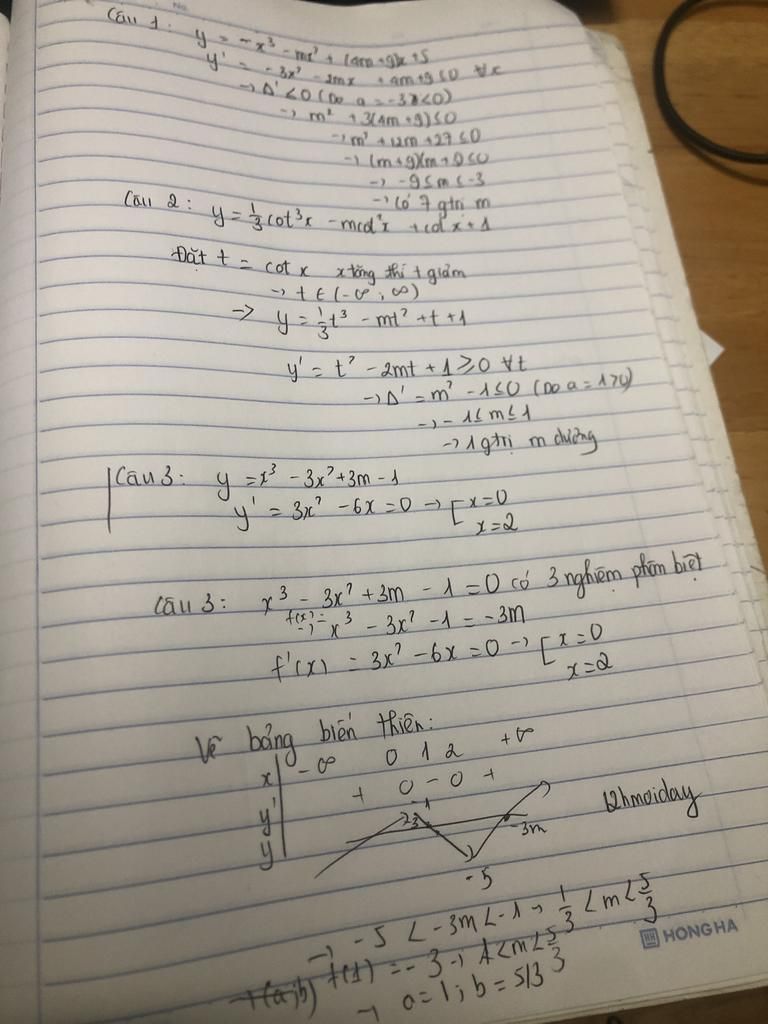 No.
Câu 1: y = -x³ - mx² + (4m+9)x+5
y' = -3x² - 2mx + 4m+9 ≤0 ∀x
→ Δ' <0 (Do a = -3<0)
→ m² + 3(4m+9)≤0
→ m² + 12m + 27 ≤0
→ -9≤m≤-3
→ có 7 gtrị m
Câu 2: y = 1/3 cot³x - mcot²x + cot x + 1
Đặt t = cot x x tăng thì t giảm
→ t ∈ (-∞; ∞)
→ y = 1/3 t³ - mt² + t + 1
y' = t² - 2mt + 1 ≥ 0 ∀t
→ Δ' = m² - 1 ≤ 0 (Do a = 1>0)
→ -1 ≤ m ≤ 1
→ 1 gtrị m dương
Câu 3: y = x³ - 3x² + 3m - 1
y' = 3x² - 6x = 0 → [ x = 0
x = 2
Câu 3: x³ - 3x² + 3m - 1 = 0 có 3 nghiệm phân biệt
f(x) =
→ x³ - 3x² - 1 = -3m
f'(x) = 3x² - 6x = 0 → [ x = 0
x = 2
Vẽ bảng biến thiên:
x -∞ 0 1 2 +∞
y' + 0 - 0 +
-1
y -3 -3m
12hmoiday
-5
→ -5 < -3m < -1 → 1/3 < m < 5/3
+(a;b) f(1) = -3 → 1<m<5/3
→ a = 1; b = 5/3
HH HONG HA